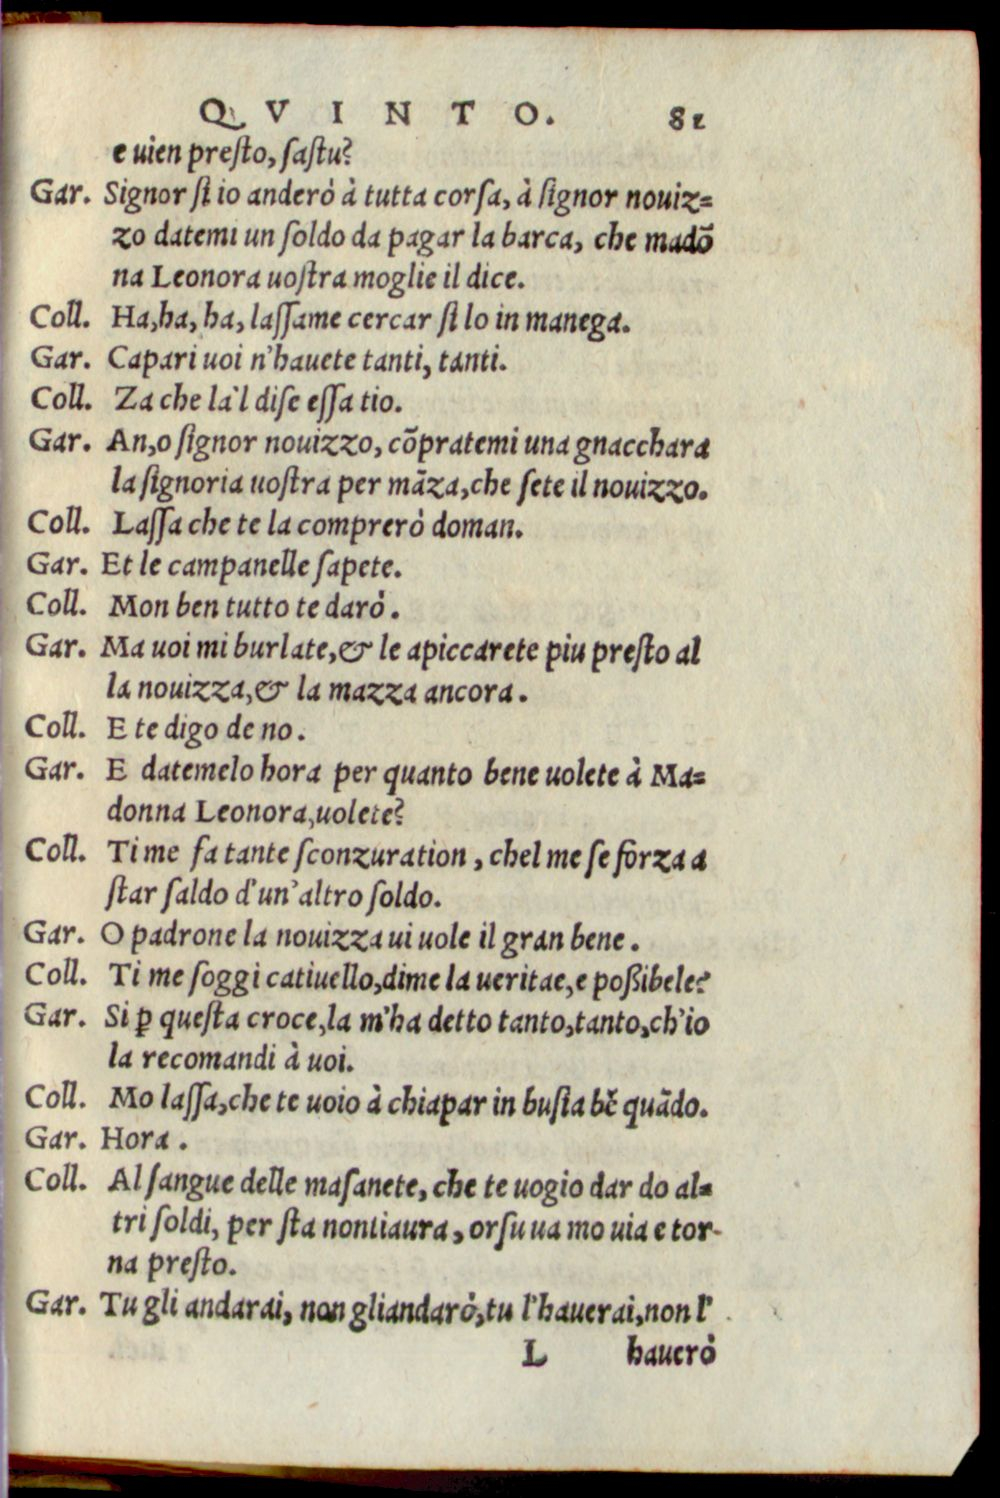 QVINTO. 81
e uien presto, sastu?
Gar. Signor sì io anderò à tutta corsa, à signor nouiz=
zo datemi un soldo da pagar la barca, che madõ
na Leonora uostra moglie il dice.
Coll. Ha, ha, ha, lassame cercar sì lo in manega.
Gar. Capari uoi n'hauete tanti, tanti.
Coll. Za che la'l dise essa tio.
Gar. An, o signor nouizzo, cõpratemi una gnacchara
la signoria uostra per mãza, che sete il nouizzo.
Coll. Lassa che te la comprerò doman.
Gar. Et le campanelle sapete.
Coll. Mon ben tutto te darò.
Gar. Ma uoi mi burlate, & le apiccarete piu presto al
la nouizza, & la mazza ancora.
Coll. E te digo de no.
Gar. E datemelo hora per quanto bene uolete à Ma=
donna Leonora, uolete?
Coll. Ti me fa tante sconzuration, chel me se forza a
star saldo d'un'altro soldo.
Gar. O padrone la nouizza ui uole il gran bene.
Coll. Ti me soggi catiuello, dime la ueritae, e poßibele?
Gar. Si ꝑ questa croce, la m'ha detto tanto, tanto, ch'io
la recomandi à uoi.
Coll. Mo lassa, che te uoio à chiapar in busia bẽ quãdo.
Gar. Hora.
Coll. Al sangue delle masanete, che te uogio dar do al=
tri soldi, per sta nontiaura, orsu ua mo uia e tor-
na presto.
Gar. Tu gli andarai, non gliandarò, tu l'hauerai, non l'
L hauerò